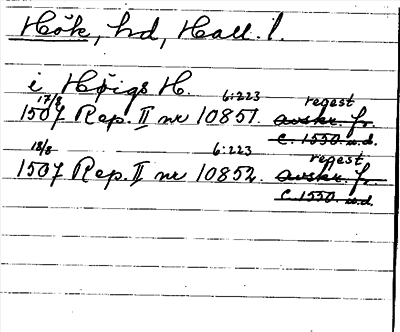 Hök, hd, Hall. l.
i Høigs H.
17/8 6:223 regest
1507 Rep. II nr 10851. avskr. fr.
c. 1550 u.d.
18/8 6:223 regest
1507 Rep. II nr 10852. avskr. fr.
c. 1550 u.d.